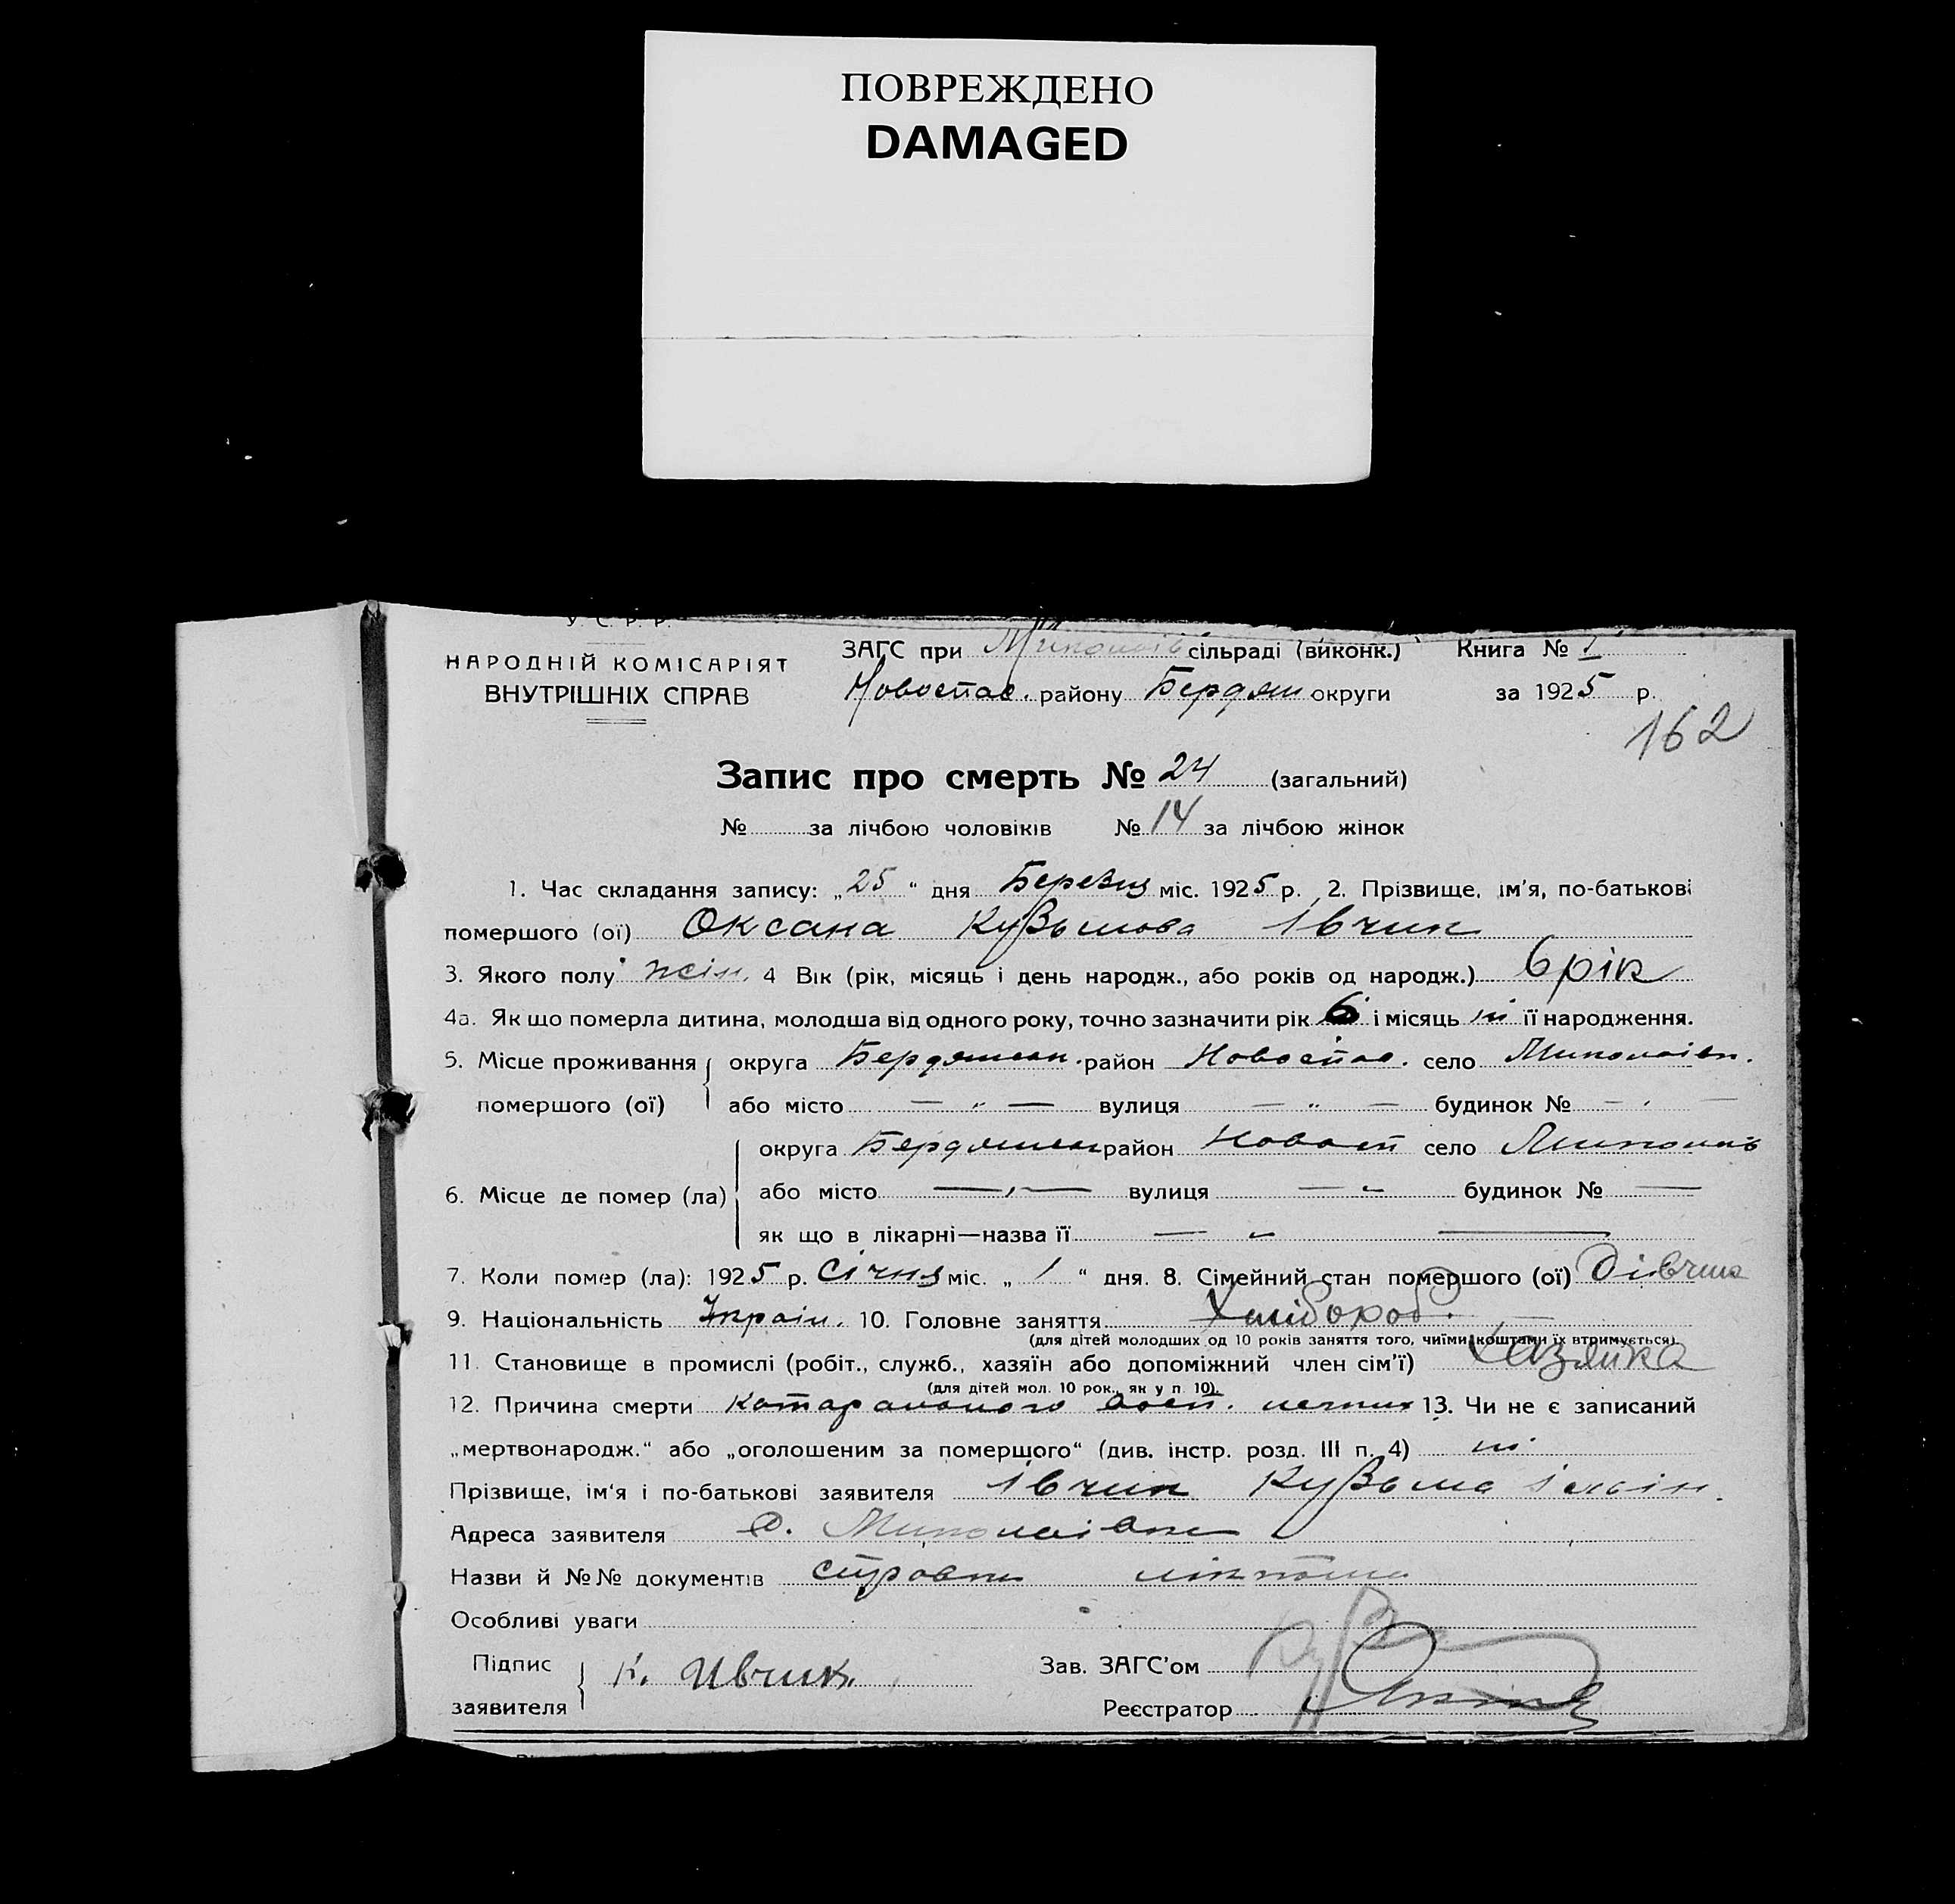 ПОВРЕЖДЕНО
DAMAGED
У. С. Р. Р.
НАРОДНІЙ КОМІСАРІЯТ
ВНУТРІШНІХ СПРАВ
ЗАГС при Миколаїв сільраді (виконк.) Книга № 1
Новоспас. району Бердян округи за 1925 р.
162
Запис про смерть № 24 (загальний)
№ за лічбою чоловіків № 14 за лічбою жінок
1. Час складання запису: „25" дня Березня міс. 1925 р. 2. Прізвище, ім'я, по-батькові
помершого (ої) Оксана Кузьмова Івчик
3. Якого полу жін. 4 Вік (рік, місяць і день народж., або років од народж.) 6 рік
4а. Як що померла дитина, молодша від одного року, точно зазначити рік 6 і місяць ні її народження.
5. Місце проживання округа Бердянськ. район Новоспас. село Миколаівк.
помершого (ої) або місто — „ — вулиця — „ — будинок № — —
округа Бердянськ район Новосп село Миколаів
6. Місце де помер (ла) або місто — „ — вулиця — „ будинок № —
як що в лікарні—назва її — „ —
7. Коли помер (ла): 1925 р. Січня міс. „1" дня. 8. Сімейний стан помершого (ої) Дівчина
9. Національність Україн. 10. Головне заняття Хлібороб. —
(для дітей молодших од 10 років заняття того, чиїми коштами їх втримується)
11. Становище в промислі (робіт., служб., хазяїн або допоміжний член сім'ї) Хазяйка
(для дітей мол. 10 рок., як у п. 10).
12. Причина смерти Катарального восп. 13. Чи не є записаний
„мертвонародж." або „оголошеним за померщого" (див. інстр. розд. III п. 4) ні
Прізвище, ім'я і по-батькові заявителя Івчик Кузьма
Адреса заявителя с. Миколаівка
Назви й №№ документів справка
Особливі уваги
Підпис
заявителя К. Ивчик.
Зав. ЗАГС'ом
Реєстратор